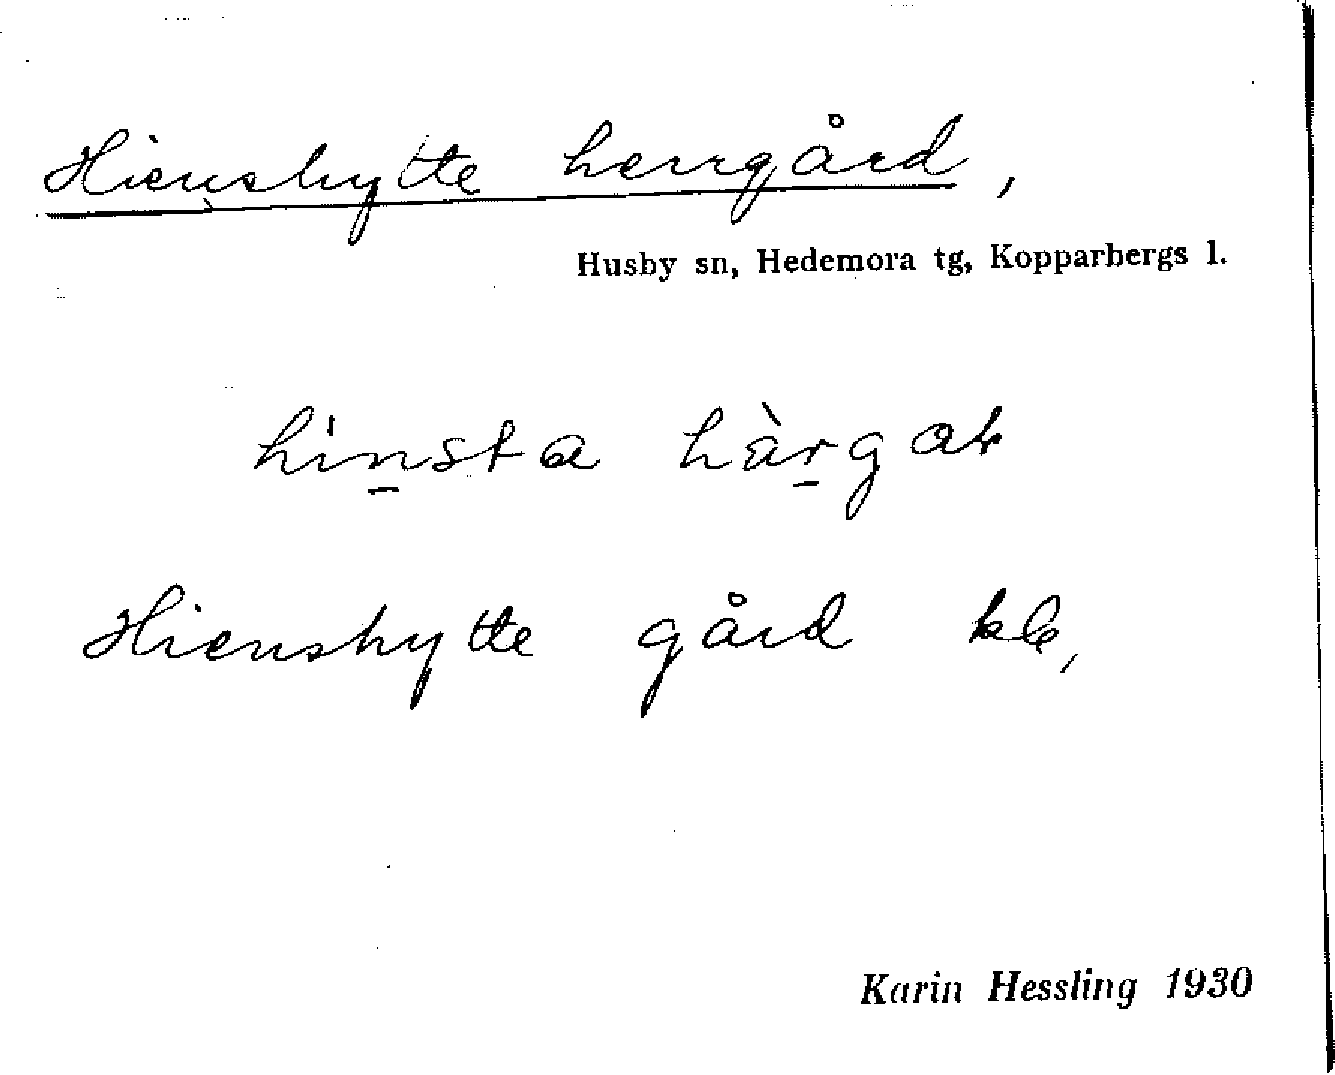 Hienshytte herrgård,
Husby sn, Hedemora tg, Kopparbergs l.
hi̍n̠sta hàr̠gaɫ
Hienshytte gård kb,
Karin Hessling 1930